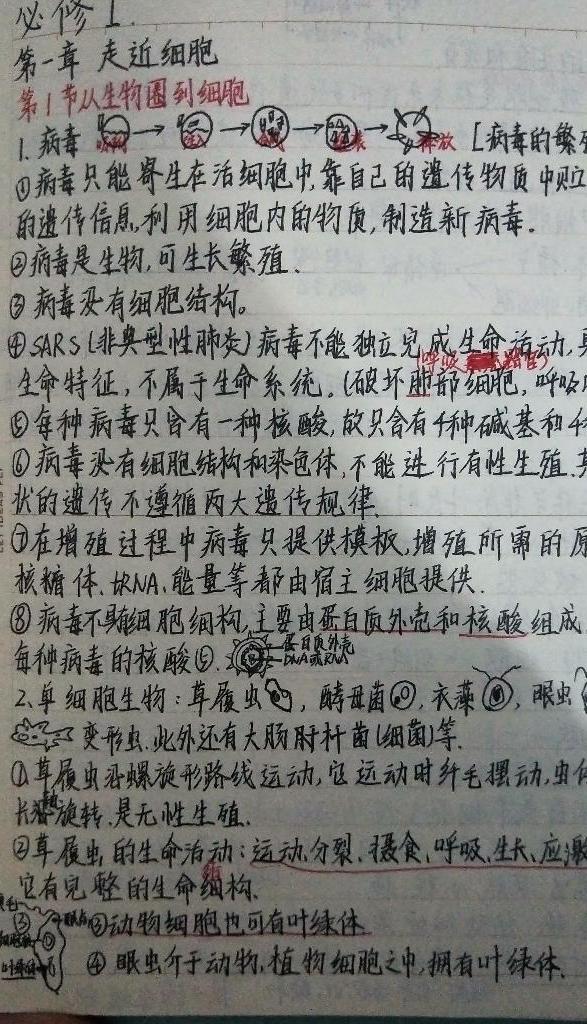 必修1.
第一章 走近细胞
第1节从生物圈到细胞
1. 病毒 → → → → 释放 [病毒的繁
①病毒只能寄生在活细胞中,靠自己的遗传物质中贮
的遗传信息,利用细胞内的物质,制造新病毒.
②病毒是生物,可生长繁殖.
③病毒没有细胞结构。
④SARS(非典型性肺炎)病毒不能独立完成生命活动,
呼吸器官)
生命特征,不属于生命系统.(破坏肺部细胞,呼吸
⑤每种病毒只含有一种核酸,故只含有4种碱基和4
⑥病毒没有细胞结构和染色体,不能进行有性生殖.其
状的遗传不遵循两大遗传规律.
⑦在增殖过程中病毒只提供模板,增殖所需的原
核糖体.tRNA.能量等都由宿主细胞提供.
⑧病毒不具细胞细构,主要由蛋白质外壳和核酸组成
每种病毒的核酸⑤. 蛋白质外壳
DNA或RNA
2.单细胞生物:草履虫 ,酵母菌 ,衣藻 ,眼虫
变形虫.此外还有大肠肝杆菌(细菌)等.
①草履虫沿螺旋形路线运动,它运动时纤毛摆动,虫体
长轴旋转.是无性生殖.
②草履虫的生命活动:运动.分裂、摄食、呼吸、生长、应激
它有完整的生命结构.
眼点 ③动物细胞也可有叶绿体
叶绿体 ④眼虫介于动物,植物细胞之中,拥有叶绿体.